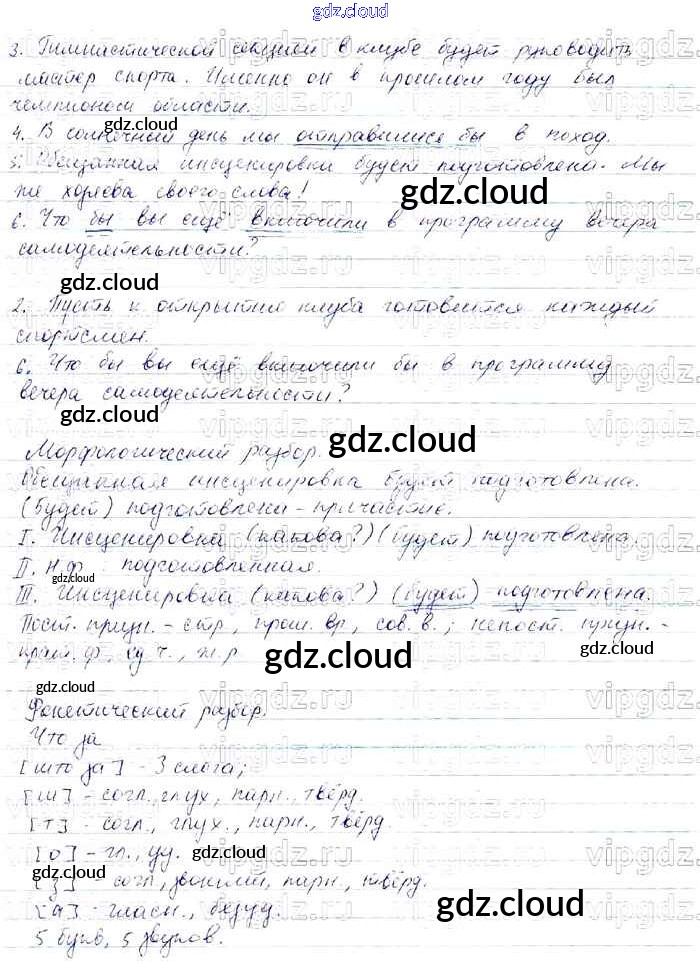 gdz.cloud
3. Гимнастической секцией в клубе будет руководить
мастер спорта. Именно он в прошлом году был
чемпионом области.
gdz.cloud
4. В солнечный день мы отправились бы в поход.
5. Обещанная инсценировка будет подготовлена. Мы
же хозяева своего слова!
gdz.cloud
6. Что бы вы ещё включили в программу вечера
самодеятельности?
gdz.cloud
2. Пусть к открытию клуба готовится каждый
спортсмен.
6. Что бы вы ещё включили бы в программу
вечера самодеятельности?
gdz.cloud
Морфологический разбор.
gdz.cloud
Обещанная инсценировка будет подготовлена.
(Будет) подготовлена - причастие.
I. Инсценировка (какова?) (будет) подготовлена.
II. н.ф. : подготовленная.
gdz.cloud
III. Инсценировка (какова?) (будет) подготовлена.
Пост. призн. - стр., прош. вр., сов. в.; непост. призн. -
крат. ф., ед. ч., ж. р.
gdz.cloud
gdz.cloud
Фонетический разбор.
Что за
[што за] - 3 слога;
[ш] - согл., глух., парн., твёрд.
[т] - согл., глух., парн., твёрд.
[о] - гл., уд.
gdz.cloud
gdz.cloud
[з] - согл., звонкий, парн., твёрд.
[а] - гласн., безуд.
gdz.cloud
5 букв, 5 звуков.
vipgdz.ru